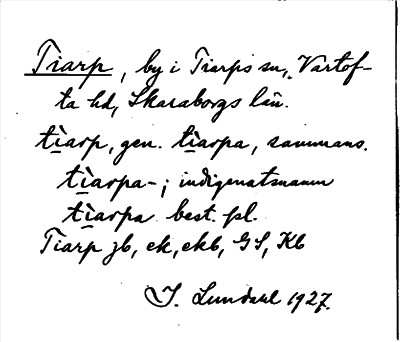 Tiarp, by i Tiarps sn, Vartof-
ta hd, Skaraborgs län.
tìarp, gen. tìarpa, sammans.
tìarpa-; indigenatsnamn
tìarpa best. pl.
Tiarp jb, ek, ekb, GS, Kb
I. Lundahl 1927.